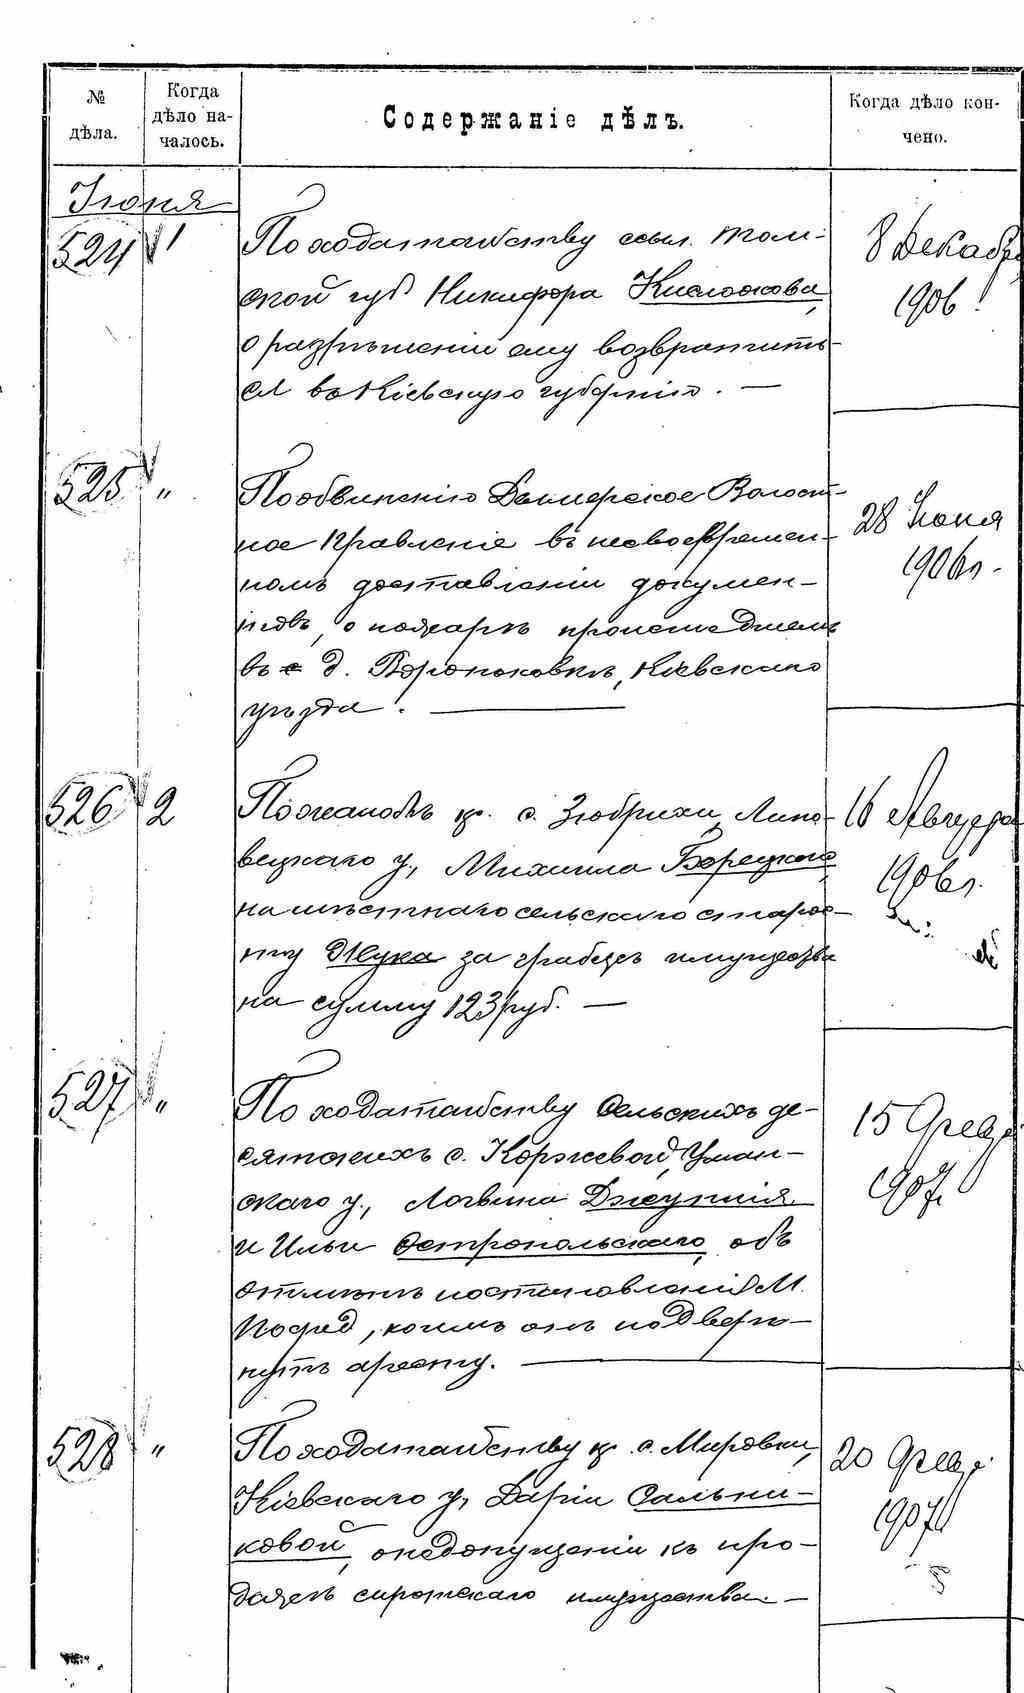 № дѣла.
Когда дѣло на-
чалось.
Содержаніе дѣлъ.
Когда дѣло кон-
чено.
Іюня
524 1
По ходатайству ссыл. Том-
ской губ Никифора
о разрѣшеніи ему возвратить-
ся въ Кіевскую губернію. —
8 Декабр
1906
525 "
По обвиненію Дымерское Волост-
ное Правленіе въ несвоевремен-
номъ доставленіи докумен-
товъ, о пожарѣ происшедшемъ
въ с д. Воропаевкѣ, Кіевскаго
уѣзда. —
28 Іюня
1906 г.
526 2
По жалобѣ кр. с. Зюбрихи, Липо-
вецкаго у., Михаила Борецкаго
на мѣстнаго сельскаго старос-
ту Жука за грабежъ имущества
на сумму 123 руб. —
16 Августа
1906 г.
527 "
По ходатайству Сельскихъ де-
сятскихъ с. Коржевой, Уман-
скаго у., Логвина
и Ильи Остропольскаго, объ
отмѣнѣ постановленій М.
Посред, коимъ онѣ подверг-
нутъ аресту. —
15 Февр.
1907
528 "
По ходатайству кр. с. Мировки,
Кіевскаго у, Даріи Сальни-
ковой, о недопущеніи къ про-
дажѣ сиротскаго имущества. —
20 Февр.
1907